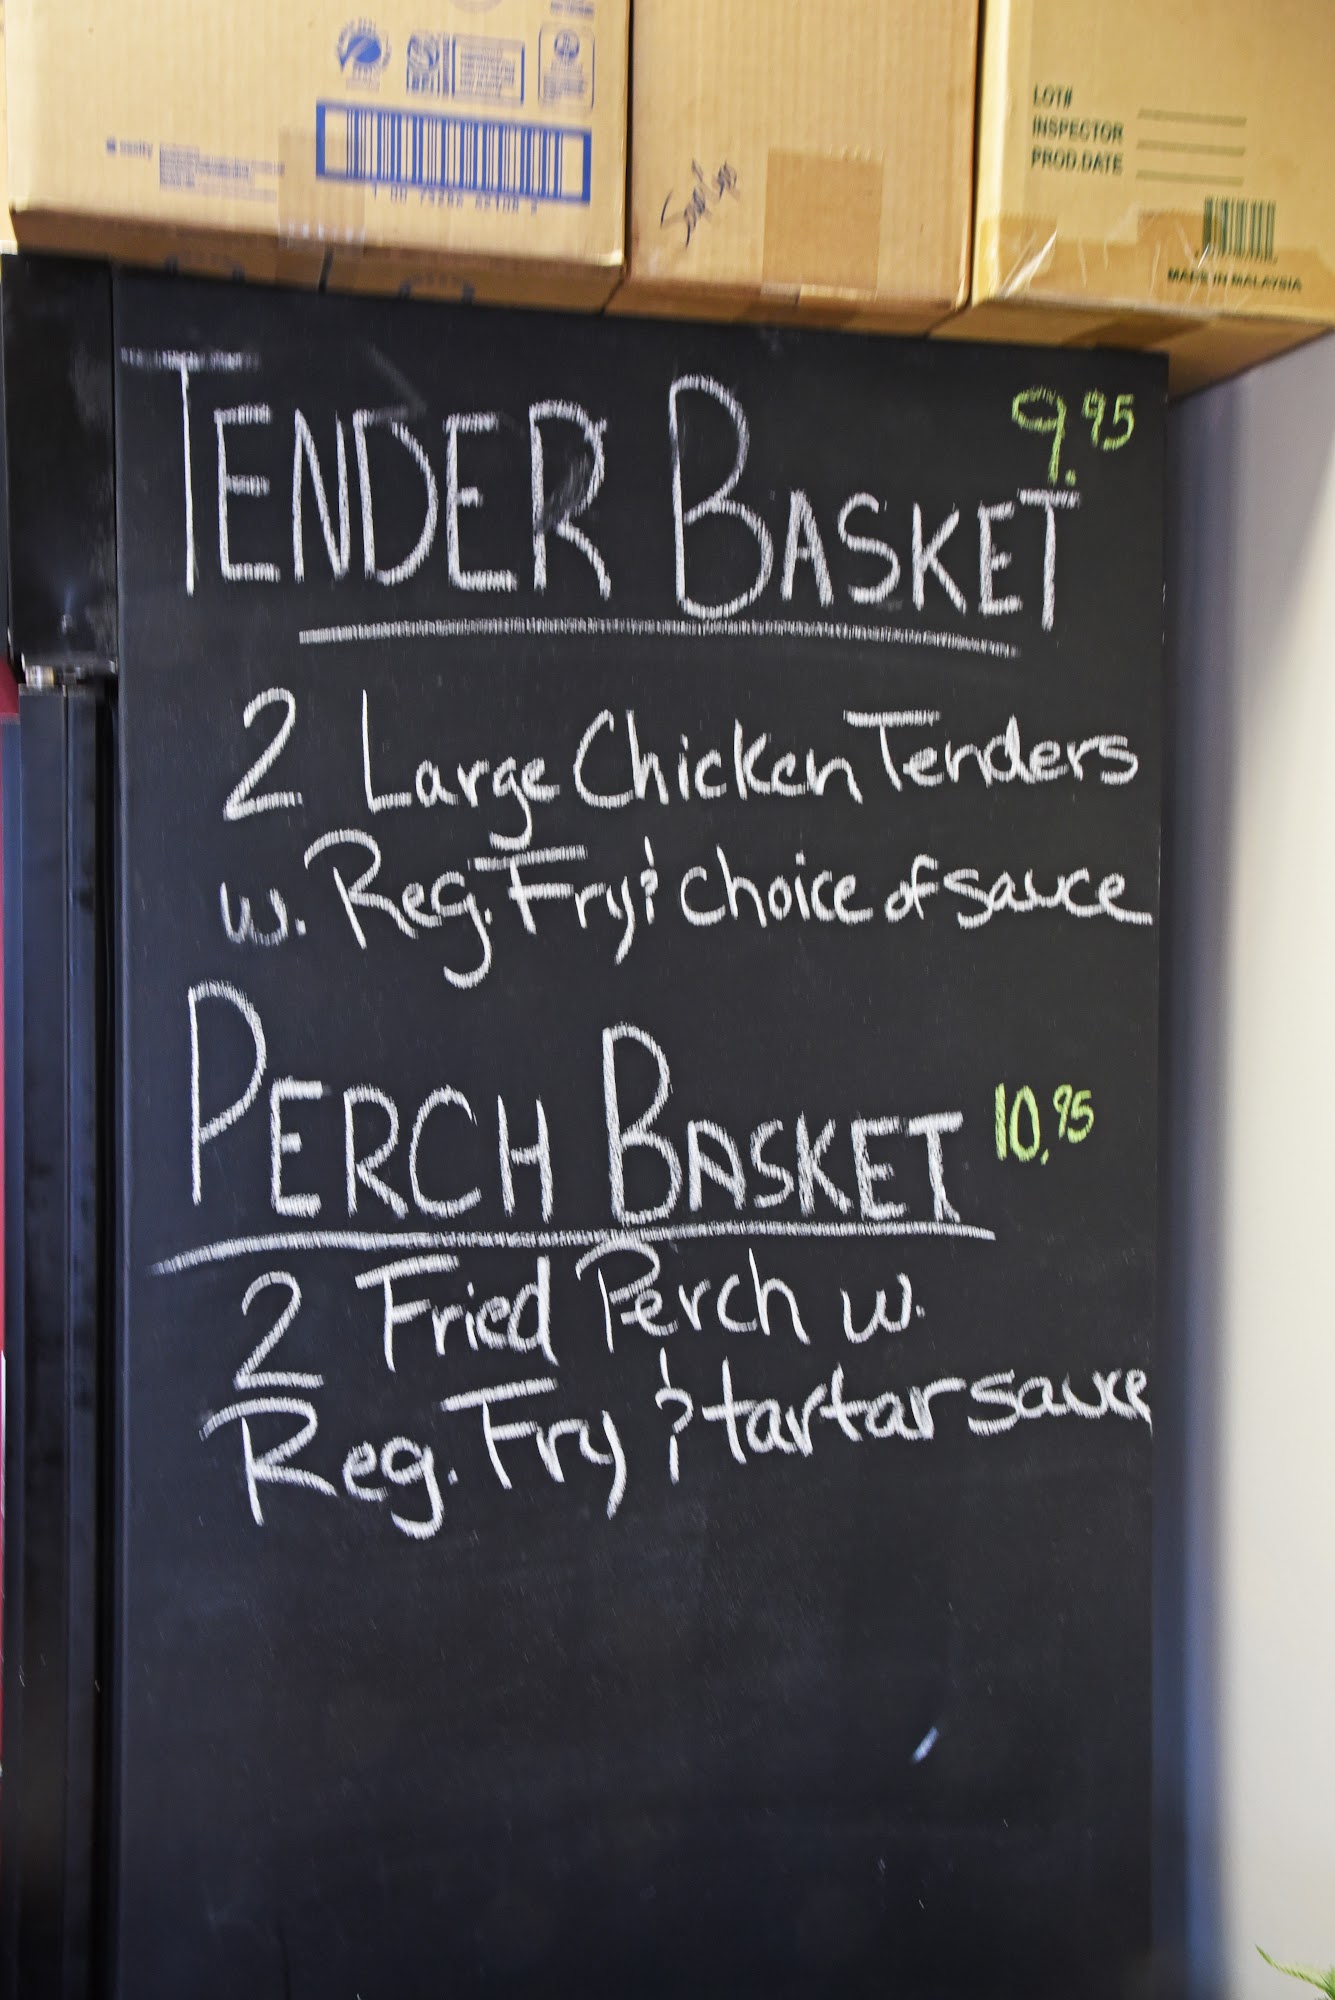 LOT#
INSPECTOR
PROD.DATE
MADE IN MALAYSIA
TENDER BASKET 9.95
2 Large Chicken Tenders
w. Reg. Fry & Choice of sauce
PERCH BASKET 10.95
2 Fried Perch w.
Reg. Fry & tartar sauce